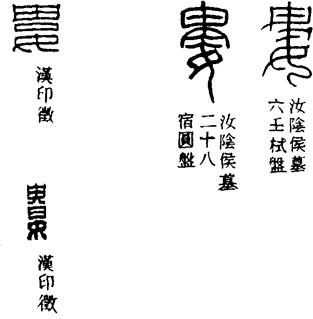 婁
汝陰侯墓
六壬栻盤
婁
汝陰侯墓
二十八
宿圓盤
婁
漢印徵
婁
漢印徵